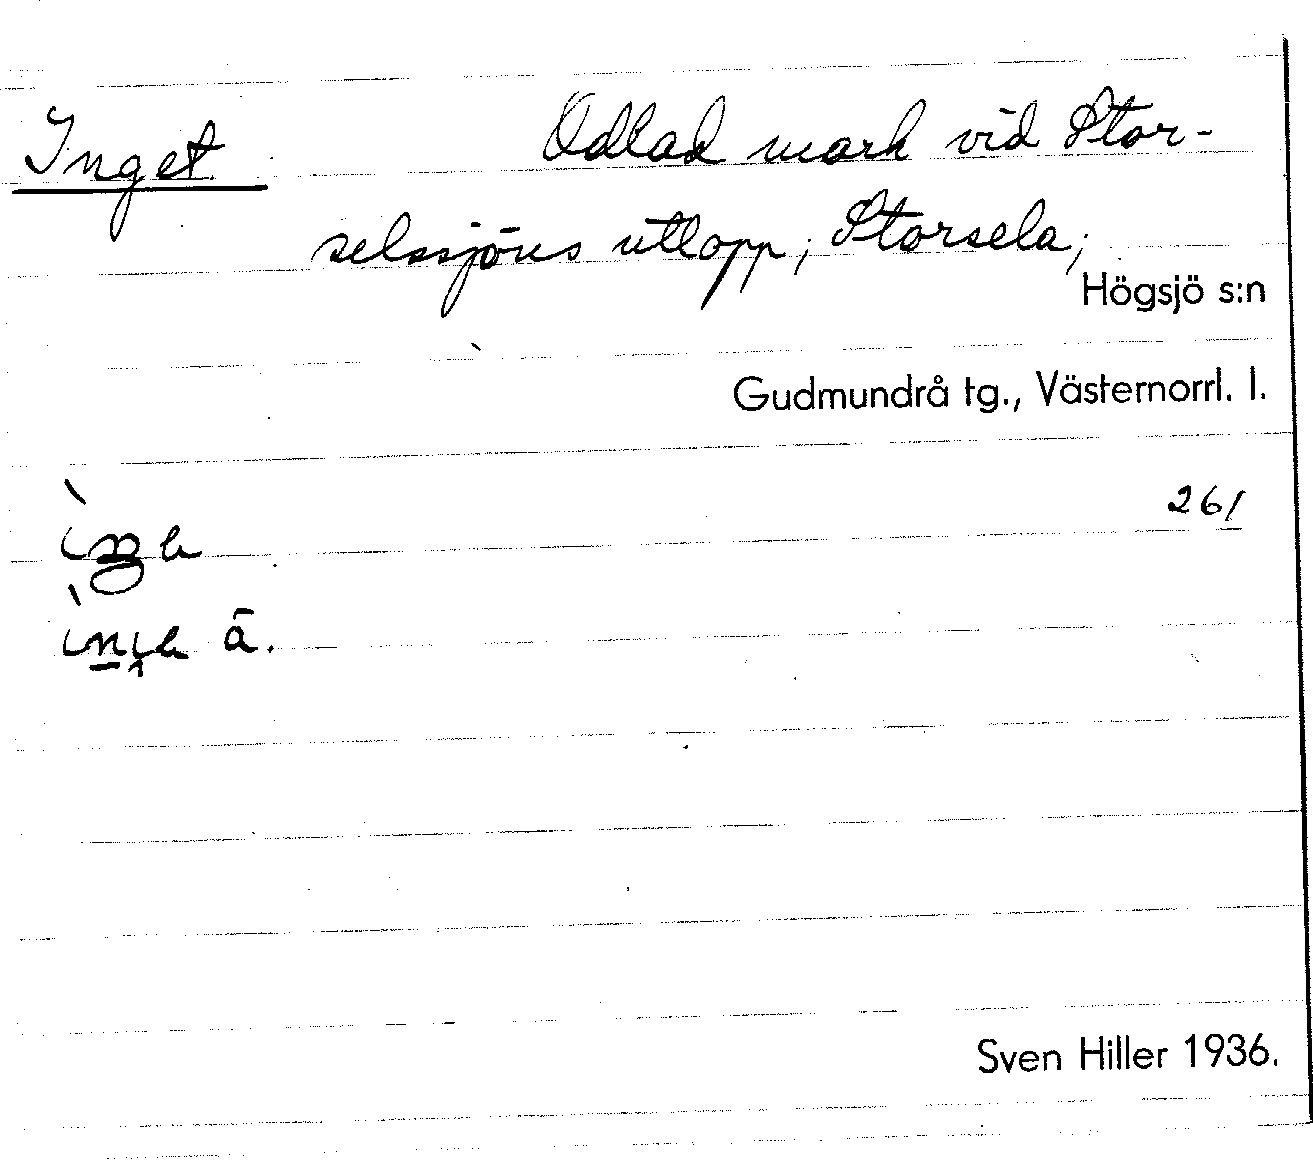 Inget Odlad mark vid Stor-
selssjöns utlopp, Storsela,
Högsjö s:n
Gudmundrå tg., Västernorrl. l.
261
ä.
Sven Hiller 1936.